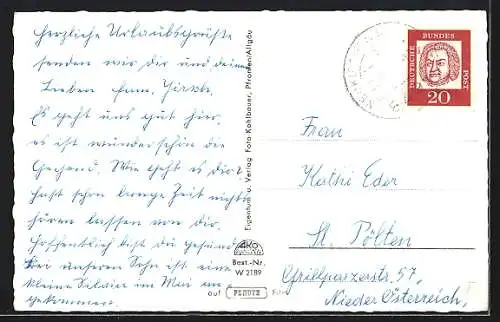 Herzliche Urlaubsgrüße
senden wir dir und deinen
Lieben Fam.
Es geht uns gut hier,
es ist wunderschön die
Gegend. Wie geht es dir?
hast schon lange Zeit nichts
hören lassen von dir.
Hoffentlich bist du gesund.
Bei unseren Sohn ist eine
kleine im Mai
angekommen.
Eigentum u. Verlag Foto Kohlbauer, Pfronten/Allgäu
AKO
Best.-Nr.
W 2189
auf PERUTZ Film
DEUTSCHE BUNDES POST
20
Frau
Kathi Eder
St. Pölten
Grillparzerstr. 57,
Nieder Österreich,